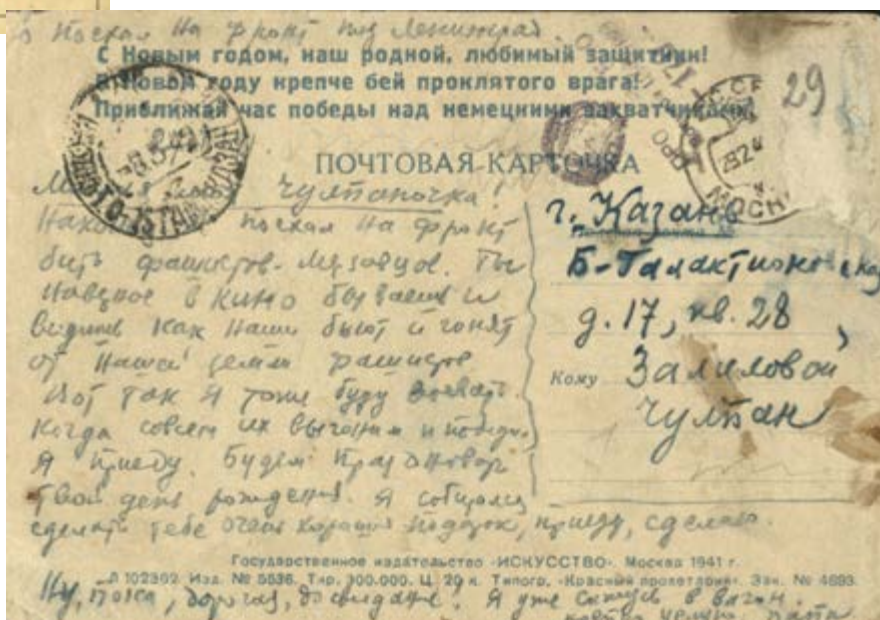 Поехал на фронт под Ленинград
С Новым годом, наш родной, любимый защитник!
В новом году крепче бей проклятого врага!
Приближай час победы над немецкими захватчиками!
29
ПОЧТОВАЯ КАРТОЧКА
Чулпаночка!
поехал на фронт
бить фашистов-мерзавцев. Ты
наверное в кино бываешь и
видишь как наши бьют и гонят
от нашей земли фашистов
Вот так я тоже буду воевать.
Когда совсем их выгоним и победим
я приеду. Будем праздновать
твой день рождения. Я собираюсь
сделать тебе очень хороший подарок, приеду, сделаю.
г. Казань
Б-Галактионовская
д. 17, кв. 28,
Кому Залиловой
Чулпан
Государственное издательство «ИСКУССТВО». Москва 1941 г.
Л 102302 Изд. № 5536. Тир. 100.000. Ц. 20 к. Типогр. «Красный пролетарий». Зак. № 4693.
Ну, пока, дорогая, до свидания! Я уже сажусь в вагон.
крепко целую. папа